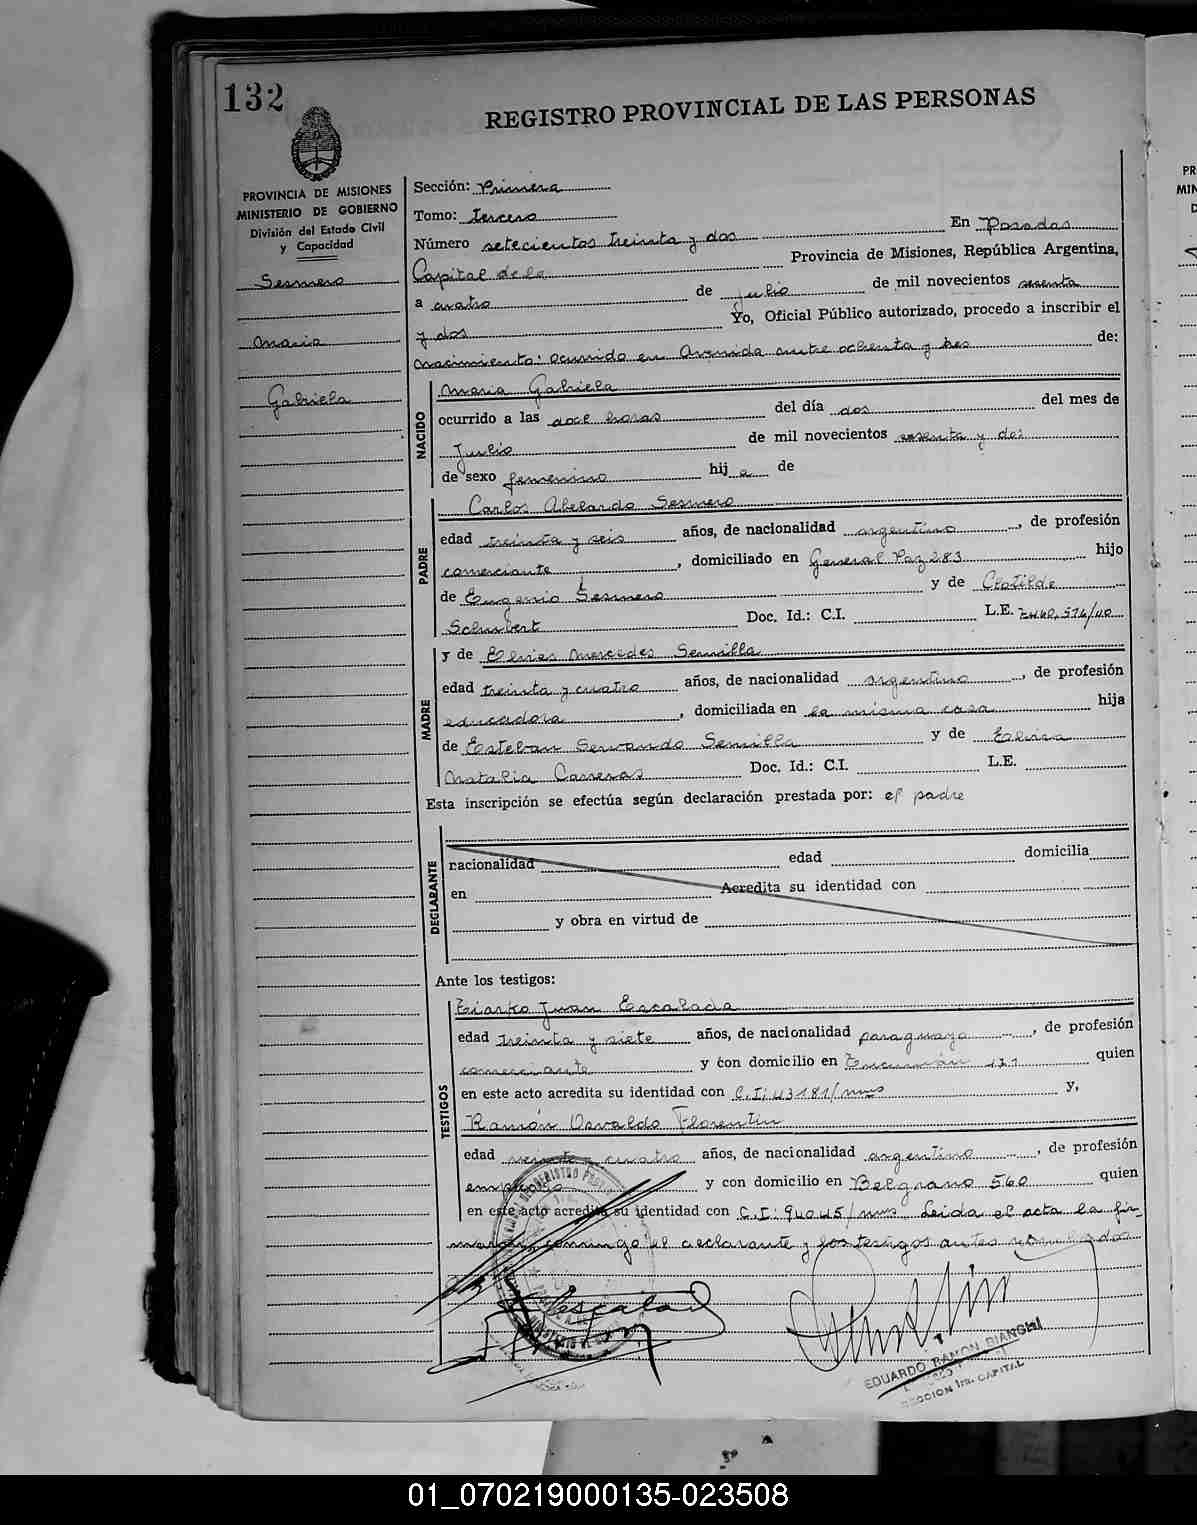 132
REGISTRO PROVINCIAL DE LAS PERSONAS
PROVINCIA DE MISIONES
MINISTERIO DE GOBIERNO
División del Estado Civil
y Capacidad
Sesmero
Maria
Gabriela
Sección: Primera
Tomo: tercero
Número setecientos treinta y dos En Posadas
Capital de la Provincia de Misiones, República Argentina,
a cuatro de julio de mil novecientos sesenta
y dos Yo, Oficial Público autorizado, procedo a inscribir el
nacimiento: ocurrido en Avenida entre ochenta y tres de:
NACIDO
Maria Gabriela
ocurrido a las doce horas del día dos del mes de
Julio de mil novecientos sesenta y dos
de sexo femenino hija de
PADRE
Carlos Abelardo Sesmero
edad treinta y seis años, de nacionalidad argentino, de profesión
comerciante, domiciliado en General Paz 283 hijo
de Eugenio Sesmero y de Clotilde
Schubert Doc. Id.: C.I. L.E.
MADRE
y de Mercedes Semilla
edad treinta y cuatro años, de nacionalidad argentino, de profesión
educadora, domiciliada en la misma casa hija
de Esteban Servando Semilla y de Elvira
Natalia Carreras Doc. Id.: C.I. L.E.
Esta inscripción se efectúa según declaración prestada por: el padre
DECLARANTE
nacionalidad edad domicilia
en Acredita su identidad con
y obra en virtud de
Ante los testigos:
TESTIGOS
Juan Escalada
edad treinta y siete años, de nacionalidad paraguaya, de profesión
comerciante y con domicilio en Tucumán quien
en este acto acredita su identidad con C.I: 43181/mns y,
Ramón Osvaldo Florentin
edad veinte y cuatro años, de nacionalidad argentino, de profesión
empleado y con domicilio en Belgrano 560 quien
en este acto acredita su identidad con C.I: 94045/mns Leida el acta la fir-
man conmigo el declarante y los testigos antes nombrados
EDUARDO RAMON BIANGHI
SECCION 1ra. CAPITAL
01_070219000135-023508